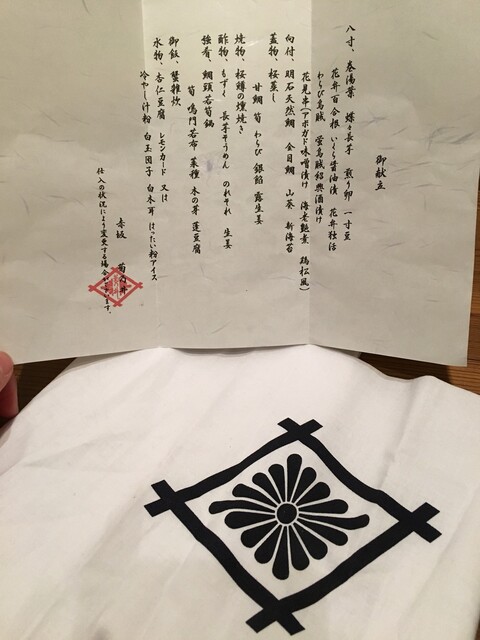 御献立
八寸、巻湯葉 蝶々長芋 煎り卵 一寸豆
花弁百合根 いくら醤油漬 花弁独活
わらび烏賊 蛍烏賊紹興酒漬け
花見串(アボガド味噌漬け 海老艶煮 鶏松風)
向付、明石天然鯛 金目鯛 山葵 新海苔
蓋物、桜蒸し
甘鯛 筍 わらび 銀餡 露生姜
焼物、桜鱒の燻焼き
酢物、もずく 長芋そうめん のれそれ 生姜
強肴、鯛頭若筍鍋
筍 鳴門若布 菜種 木の芽 蓬豆腐
御飯、蟹雑炊
水物、杏仁豆腐 レモンカード 又は
冷やし汁粉 白玉団子 白木耳 はったい粉アイス
赤坂 菊乃井
仕入の状況により変更する場合がございます。